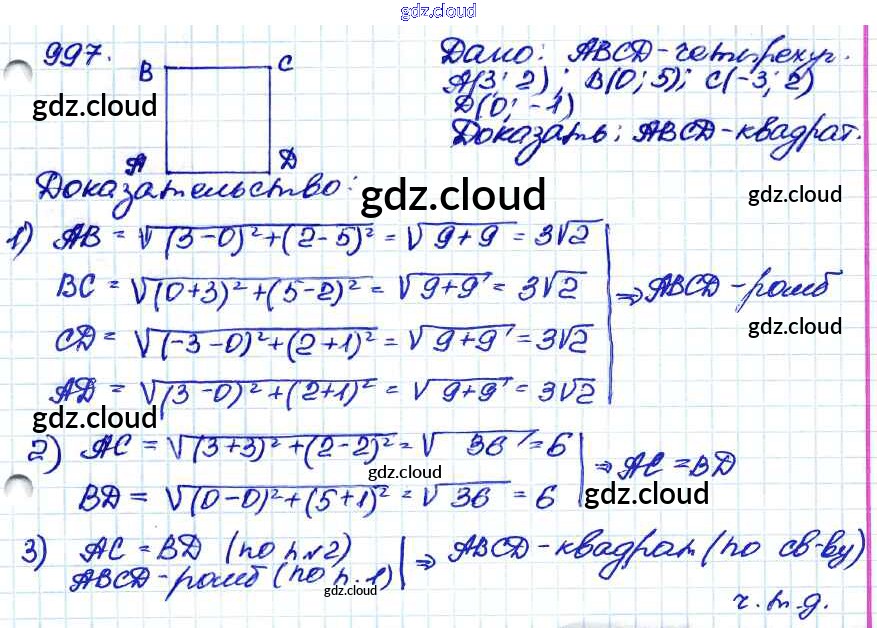 gdz.cloud
997.
B C
Дано: ABCD-четырехуг.
A(3; 2); B(0; 5); C(-3; 2)
gdz.cloud
D(0; -1)
Доказать: ABCD-квадрат.
A D
Доказательство:
gdz.cloud
gdz.cloud
1) AB = √(3-0)²+(2-5)² = √9+9 = 3√2
BC = √(0+3)²+(5-2)² = √9+9 = 3√2
⇒ ABCD-ромб
CD = √(-3-0)²+(2+1)² = √9+9 = 3√2
gdz.cloud
AD = √(3-0)²+(2+1)² = √9+9 = 3√2
gdz.cloud
2) AC = √(3+3)²+(2-2)² = √36 = 6
gdz.cloud
⇒ AC = BD
BD = √(0-0)²+(5+1)² = √36 = 6
gdz.cloud
3) AC = BD (по п.2)
ABCD-ромб (по п.1)
⇒ ABCD-квадрат (по св-ву)
gdz.cloud
ч.т.д.